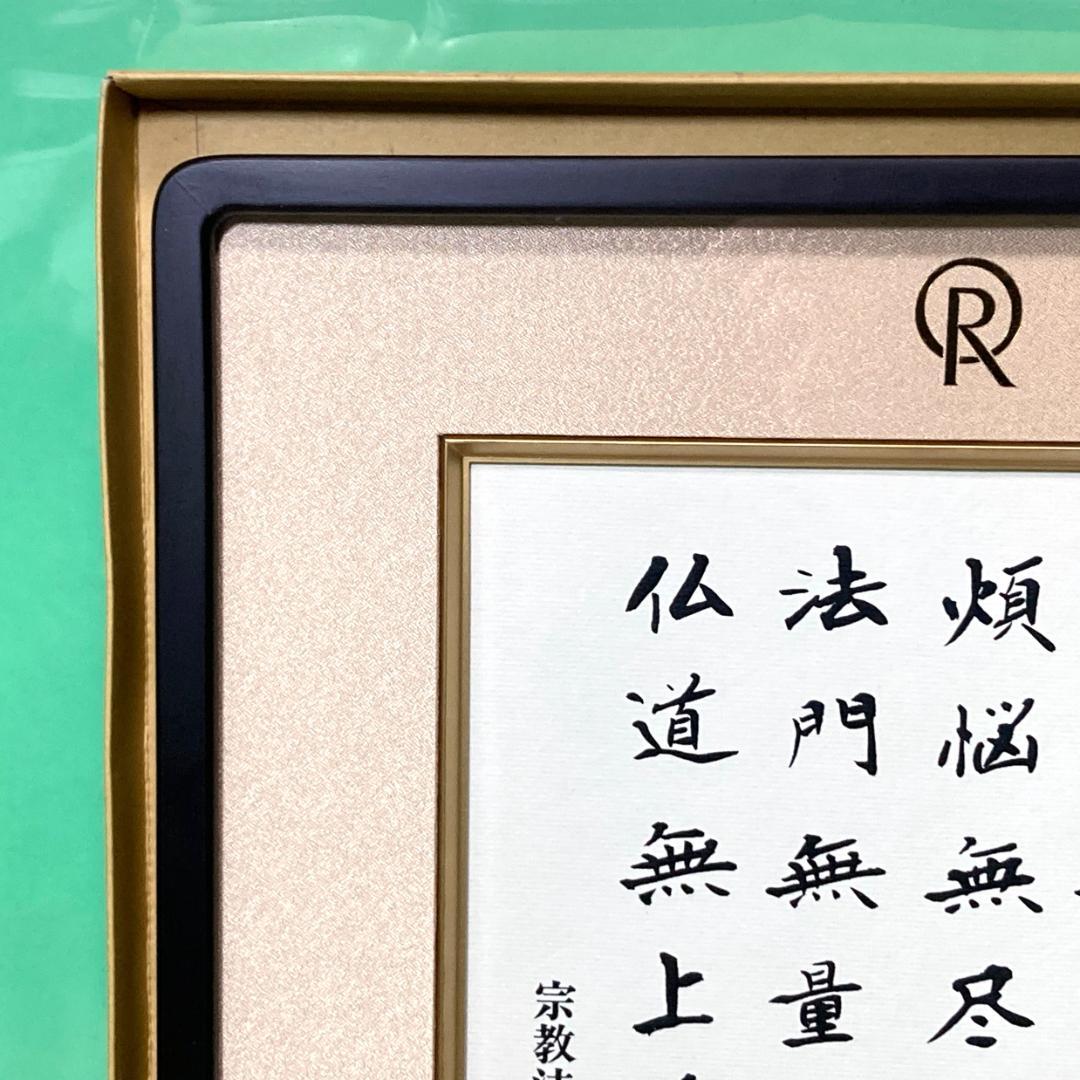 R
煩悩無尽
法門無量
仏道無上
宗教法